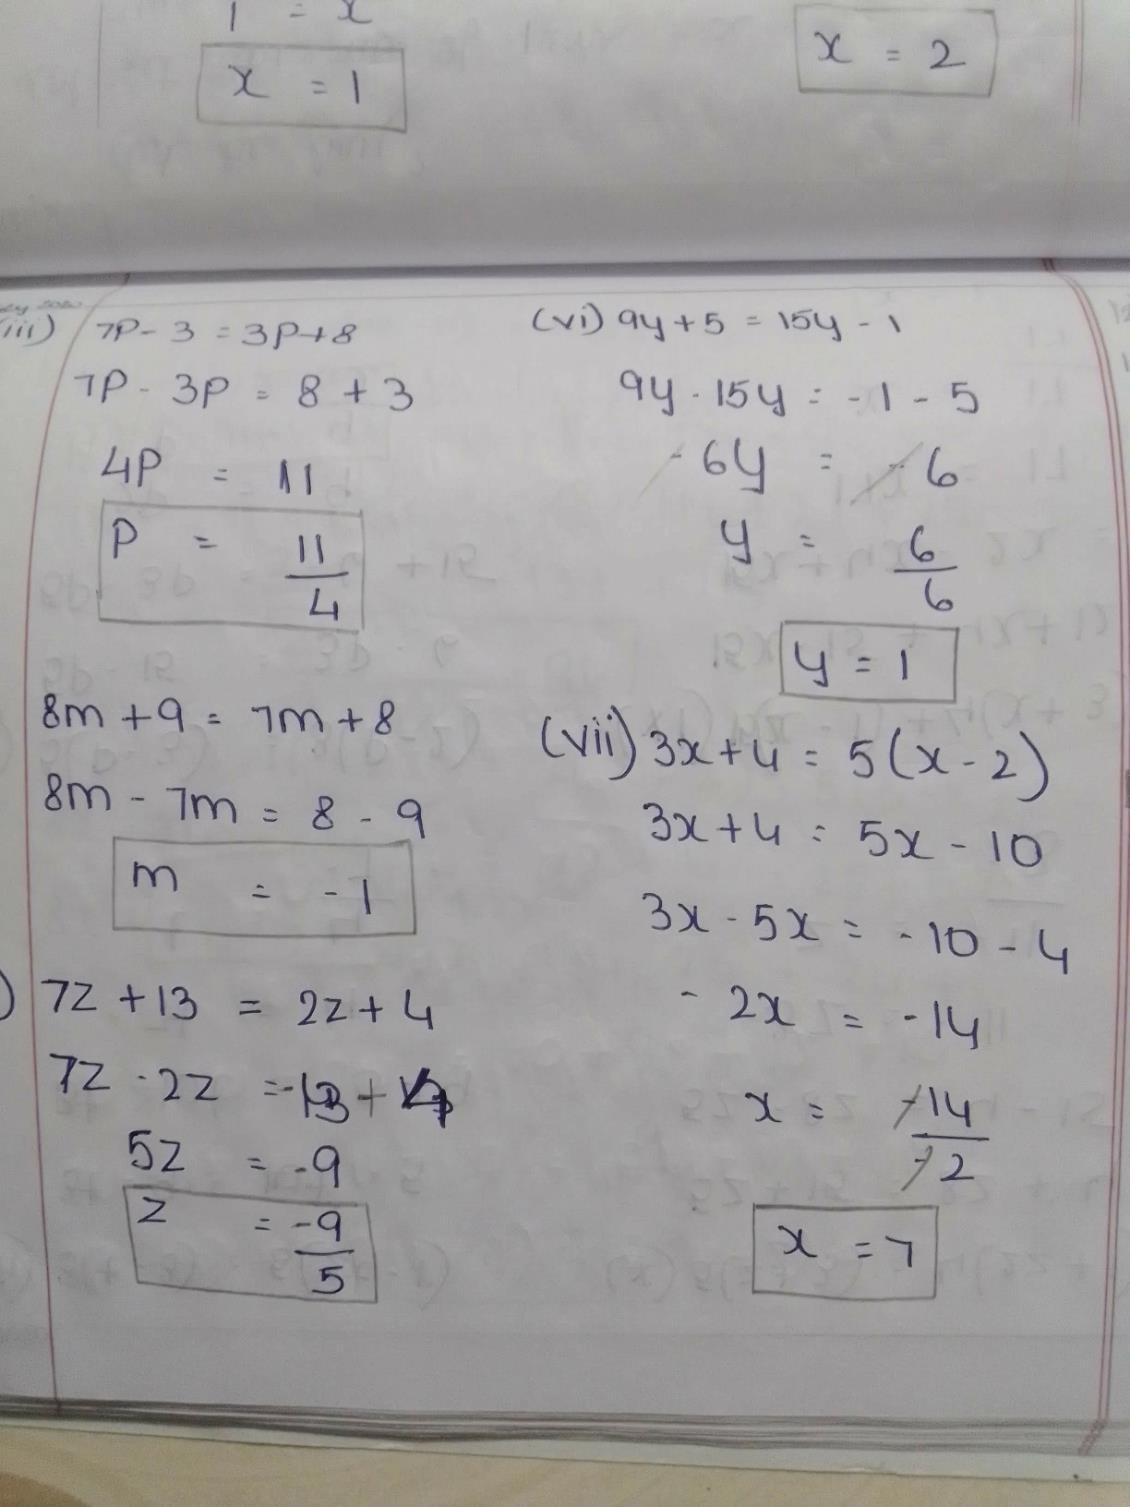 1 = x
x = 1
x = 2
(iii) 7P - 3 = 3P + 8
7P - 3P = 8 + 3
4P = 11
P = 11/4
8m + 9 = 7m + 8
8m - 7m = 8 - 9
m = -1
) 7z + 13 = 2z + 4
7z - 2z = -13 + 4
5z = -9
z = -9/5
(vi) 9y + 5 = 15y - 1
9y - 15y = -1 - 5
-6y = -6
y = 6/6
y = 1
(vii) 3x + 4 = 5(x - 2)
3x + 4 = 5x - 10
3x - 5x = -10 - 4
-2x = -14
x = -14/-2
x = 7